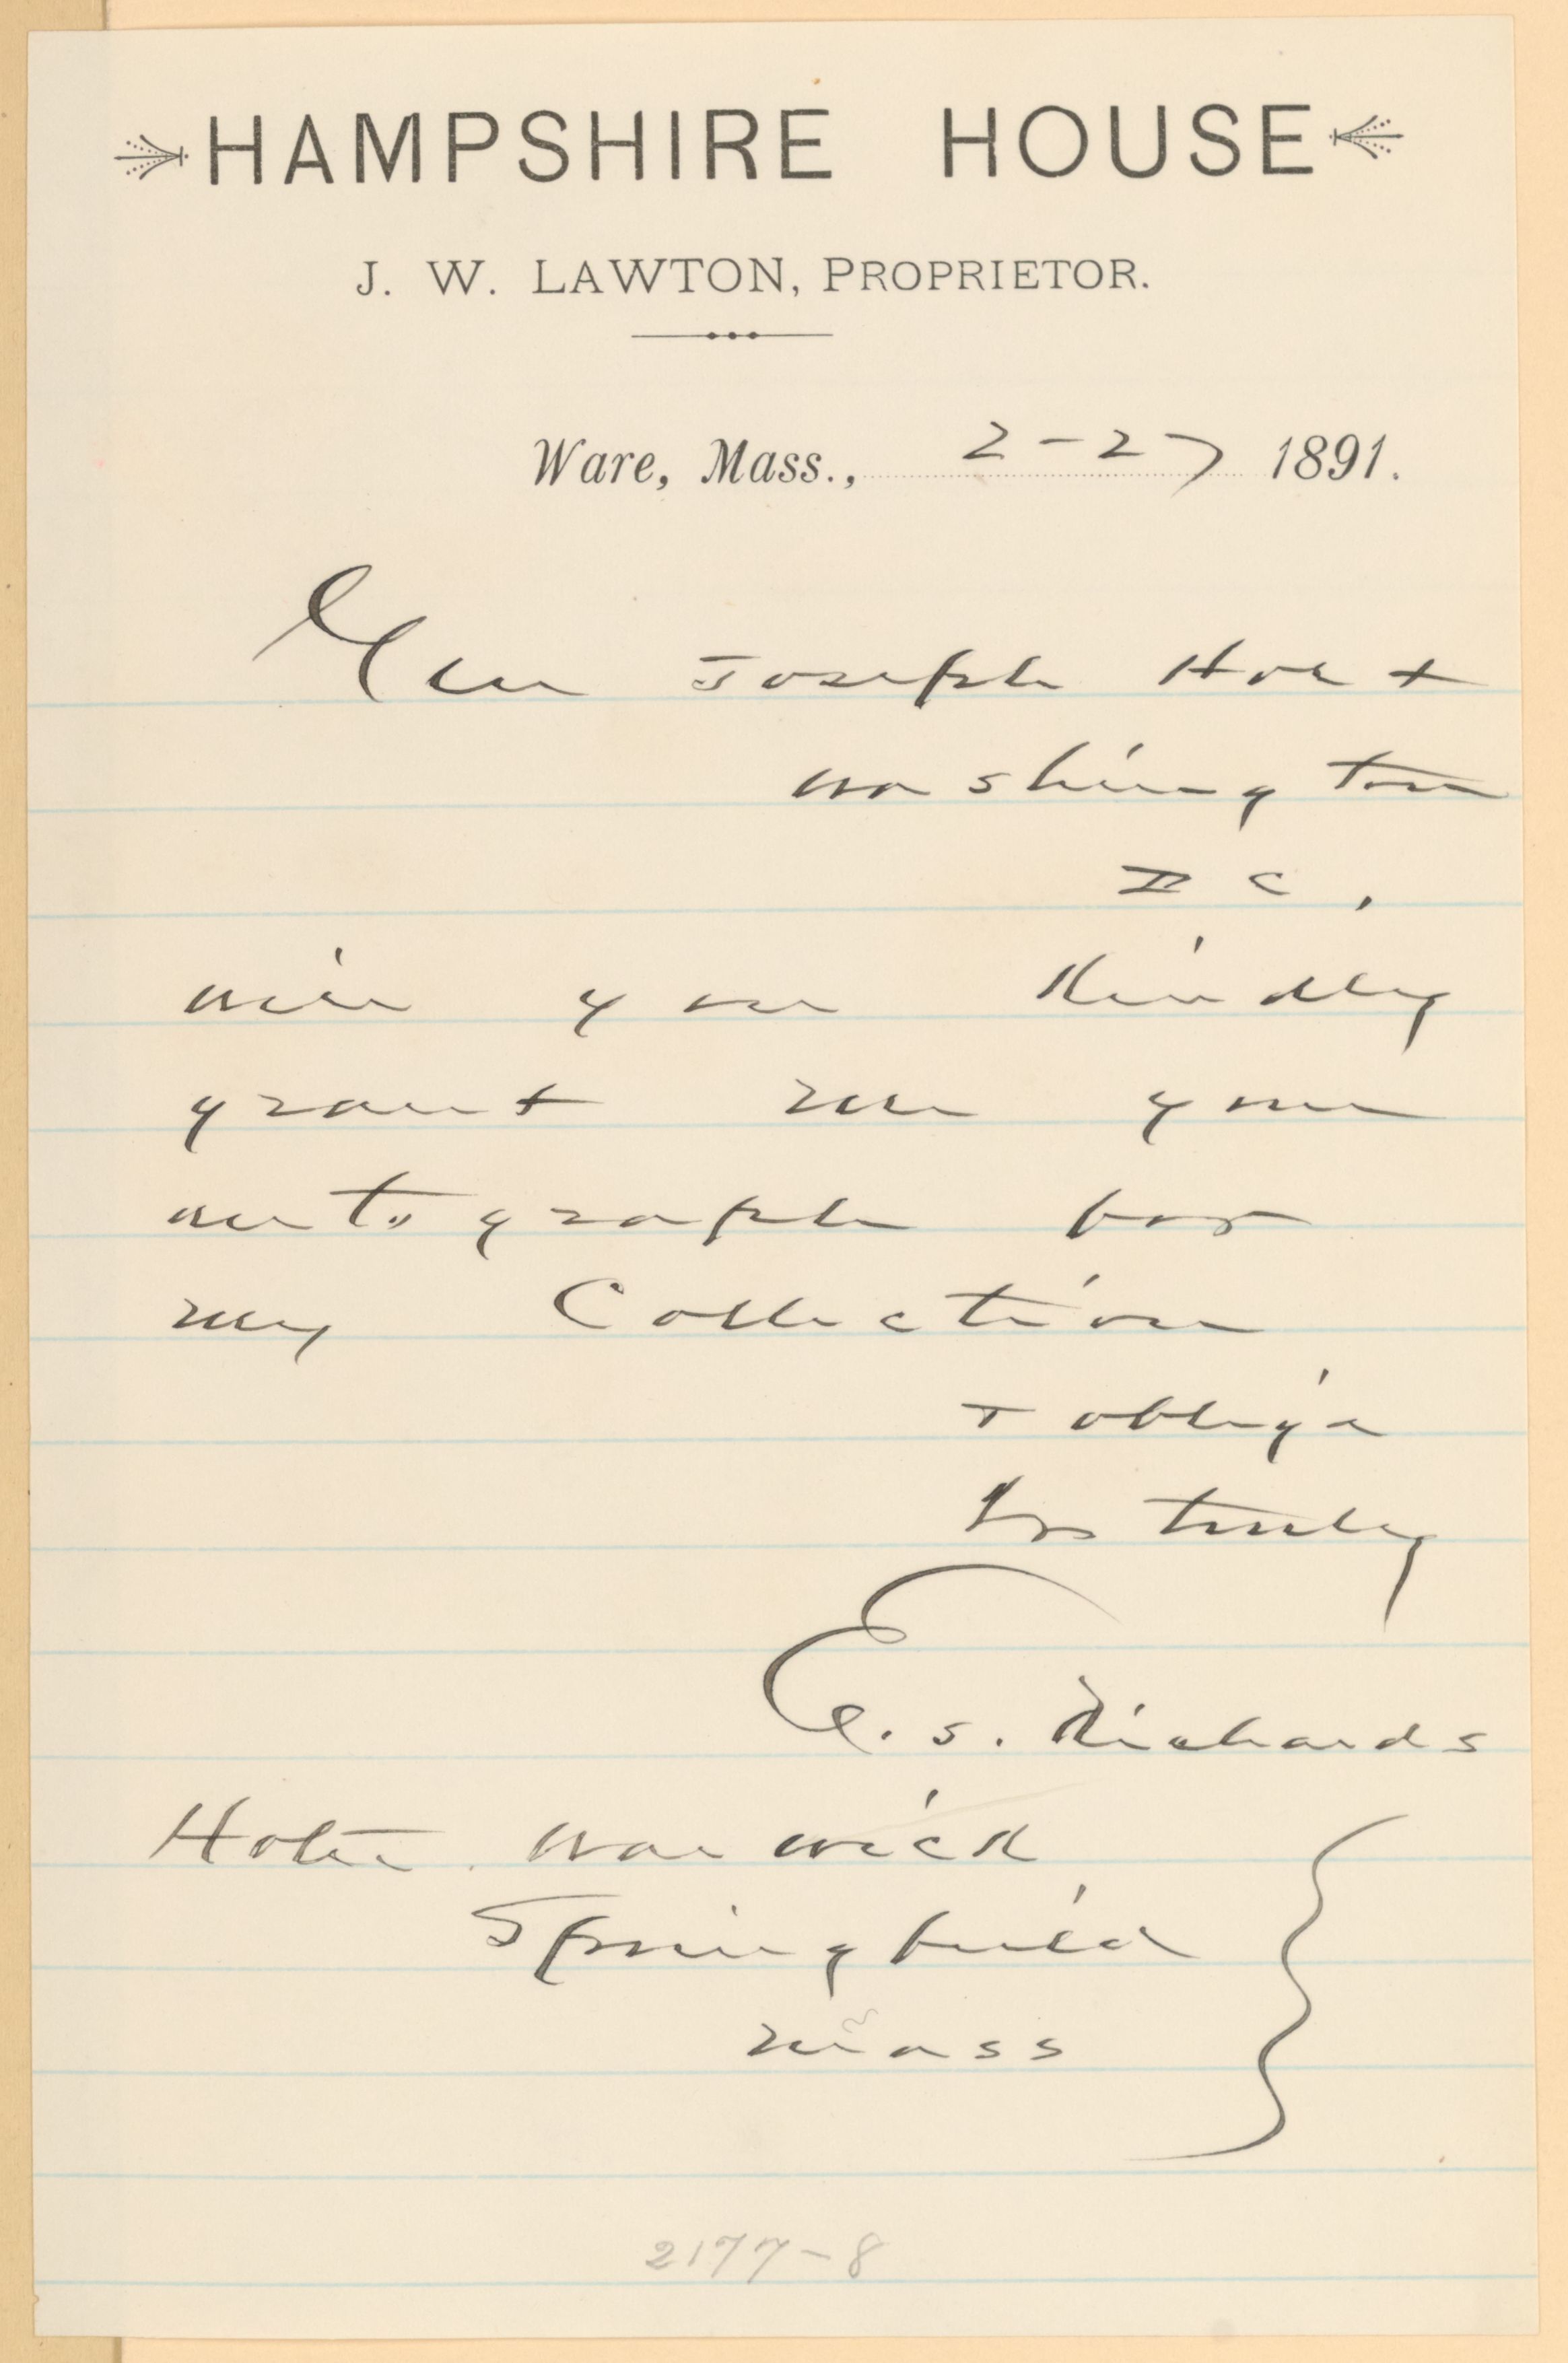 HAMPSHIRE HOUSE
J. W. LAWTON, PROPRIETOR.
Ware, Mass., 2-27 1891.
Gen Joseph Holt
Washington
D C,
Will you kindly
grant me your
autograph for
my Collection
& oblige
Yrs truly
E. S. Richards
Hotel Warwick
Springfield
Mass
2177-8